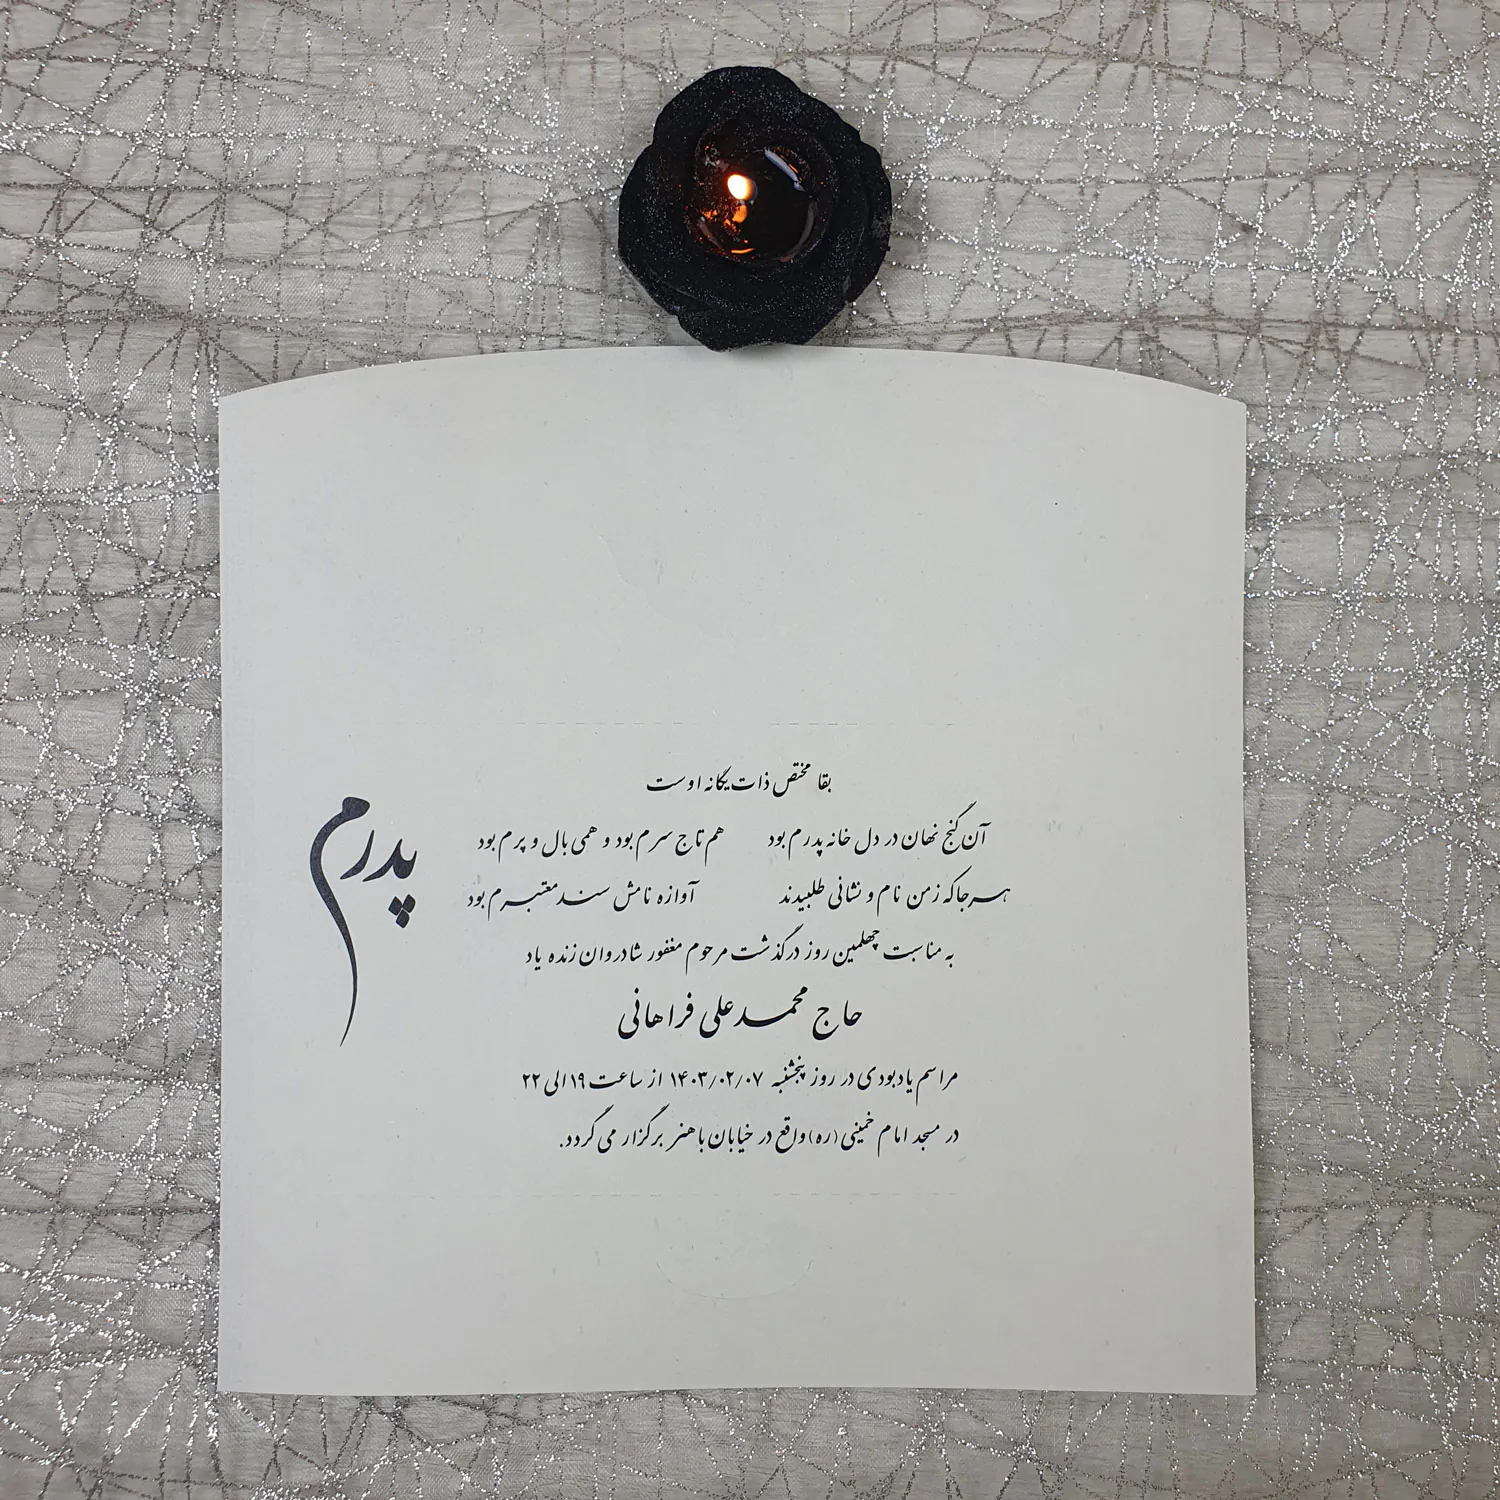 بقا مختص ذات یگانه اوست
آن گنج نهان در دل خانه پدرم بود هم تاج سرم بود و همی بال و پرم بود
هرجا که ز من نام و نشانی طلبیدند آوازه نامش سند معتبرم بود
به مناسبت چهلمین روز درگذشت مرحوم مغفور شادروان زنده یاد
حاج محمدعلی فراهانی
مراسم یادبودی در روز پنجشنبه ۱۴۰۳/۰۲/۰۷ از ساعت ۱۹ الی ۲۲
در مسجد امام خمینی (ره) واقع در خیابان باهنر برگزار می گردد.
پدرم